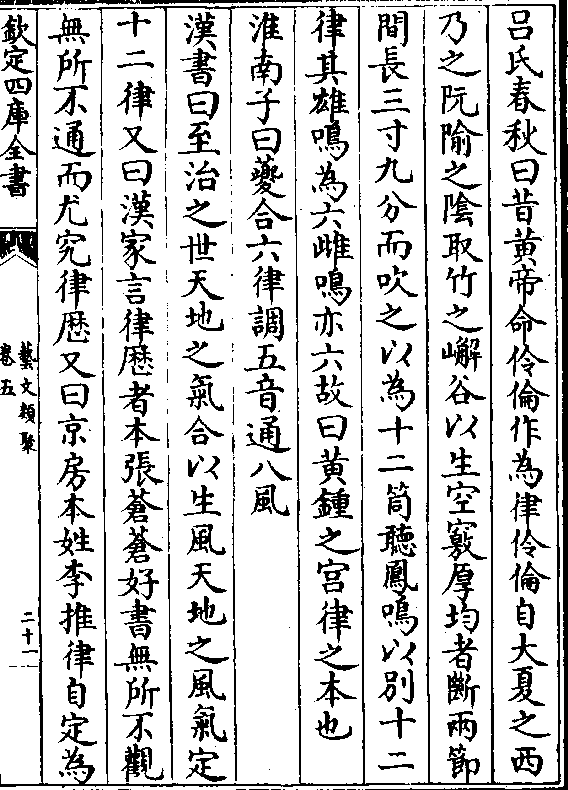 呂氏春秋曰昔黄帝命伶倫作為律伶倫自大夏之西
乃之阮隃之陰取竹之嶰谷以生空竅厚均者斷兩節
間長三寸九分而吹之以為十二筒聽鳳鳴以别十二
律其雄鳴為六雌鳴亦六故曰黄鍾之宫律之本也
淮南子曰夔合六律調五音通八風
漢書曰至治之世天地之氣合以生風天地之風氣定
十二律又曰漢家言律歴者本張蒼蒼好書無所不觀
無所不通而尤究律歴又曰京房本姓李推律自定為
欽定四庫全書
藝文類聚
卷五
二十一